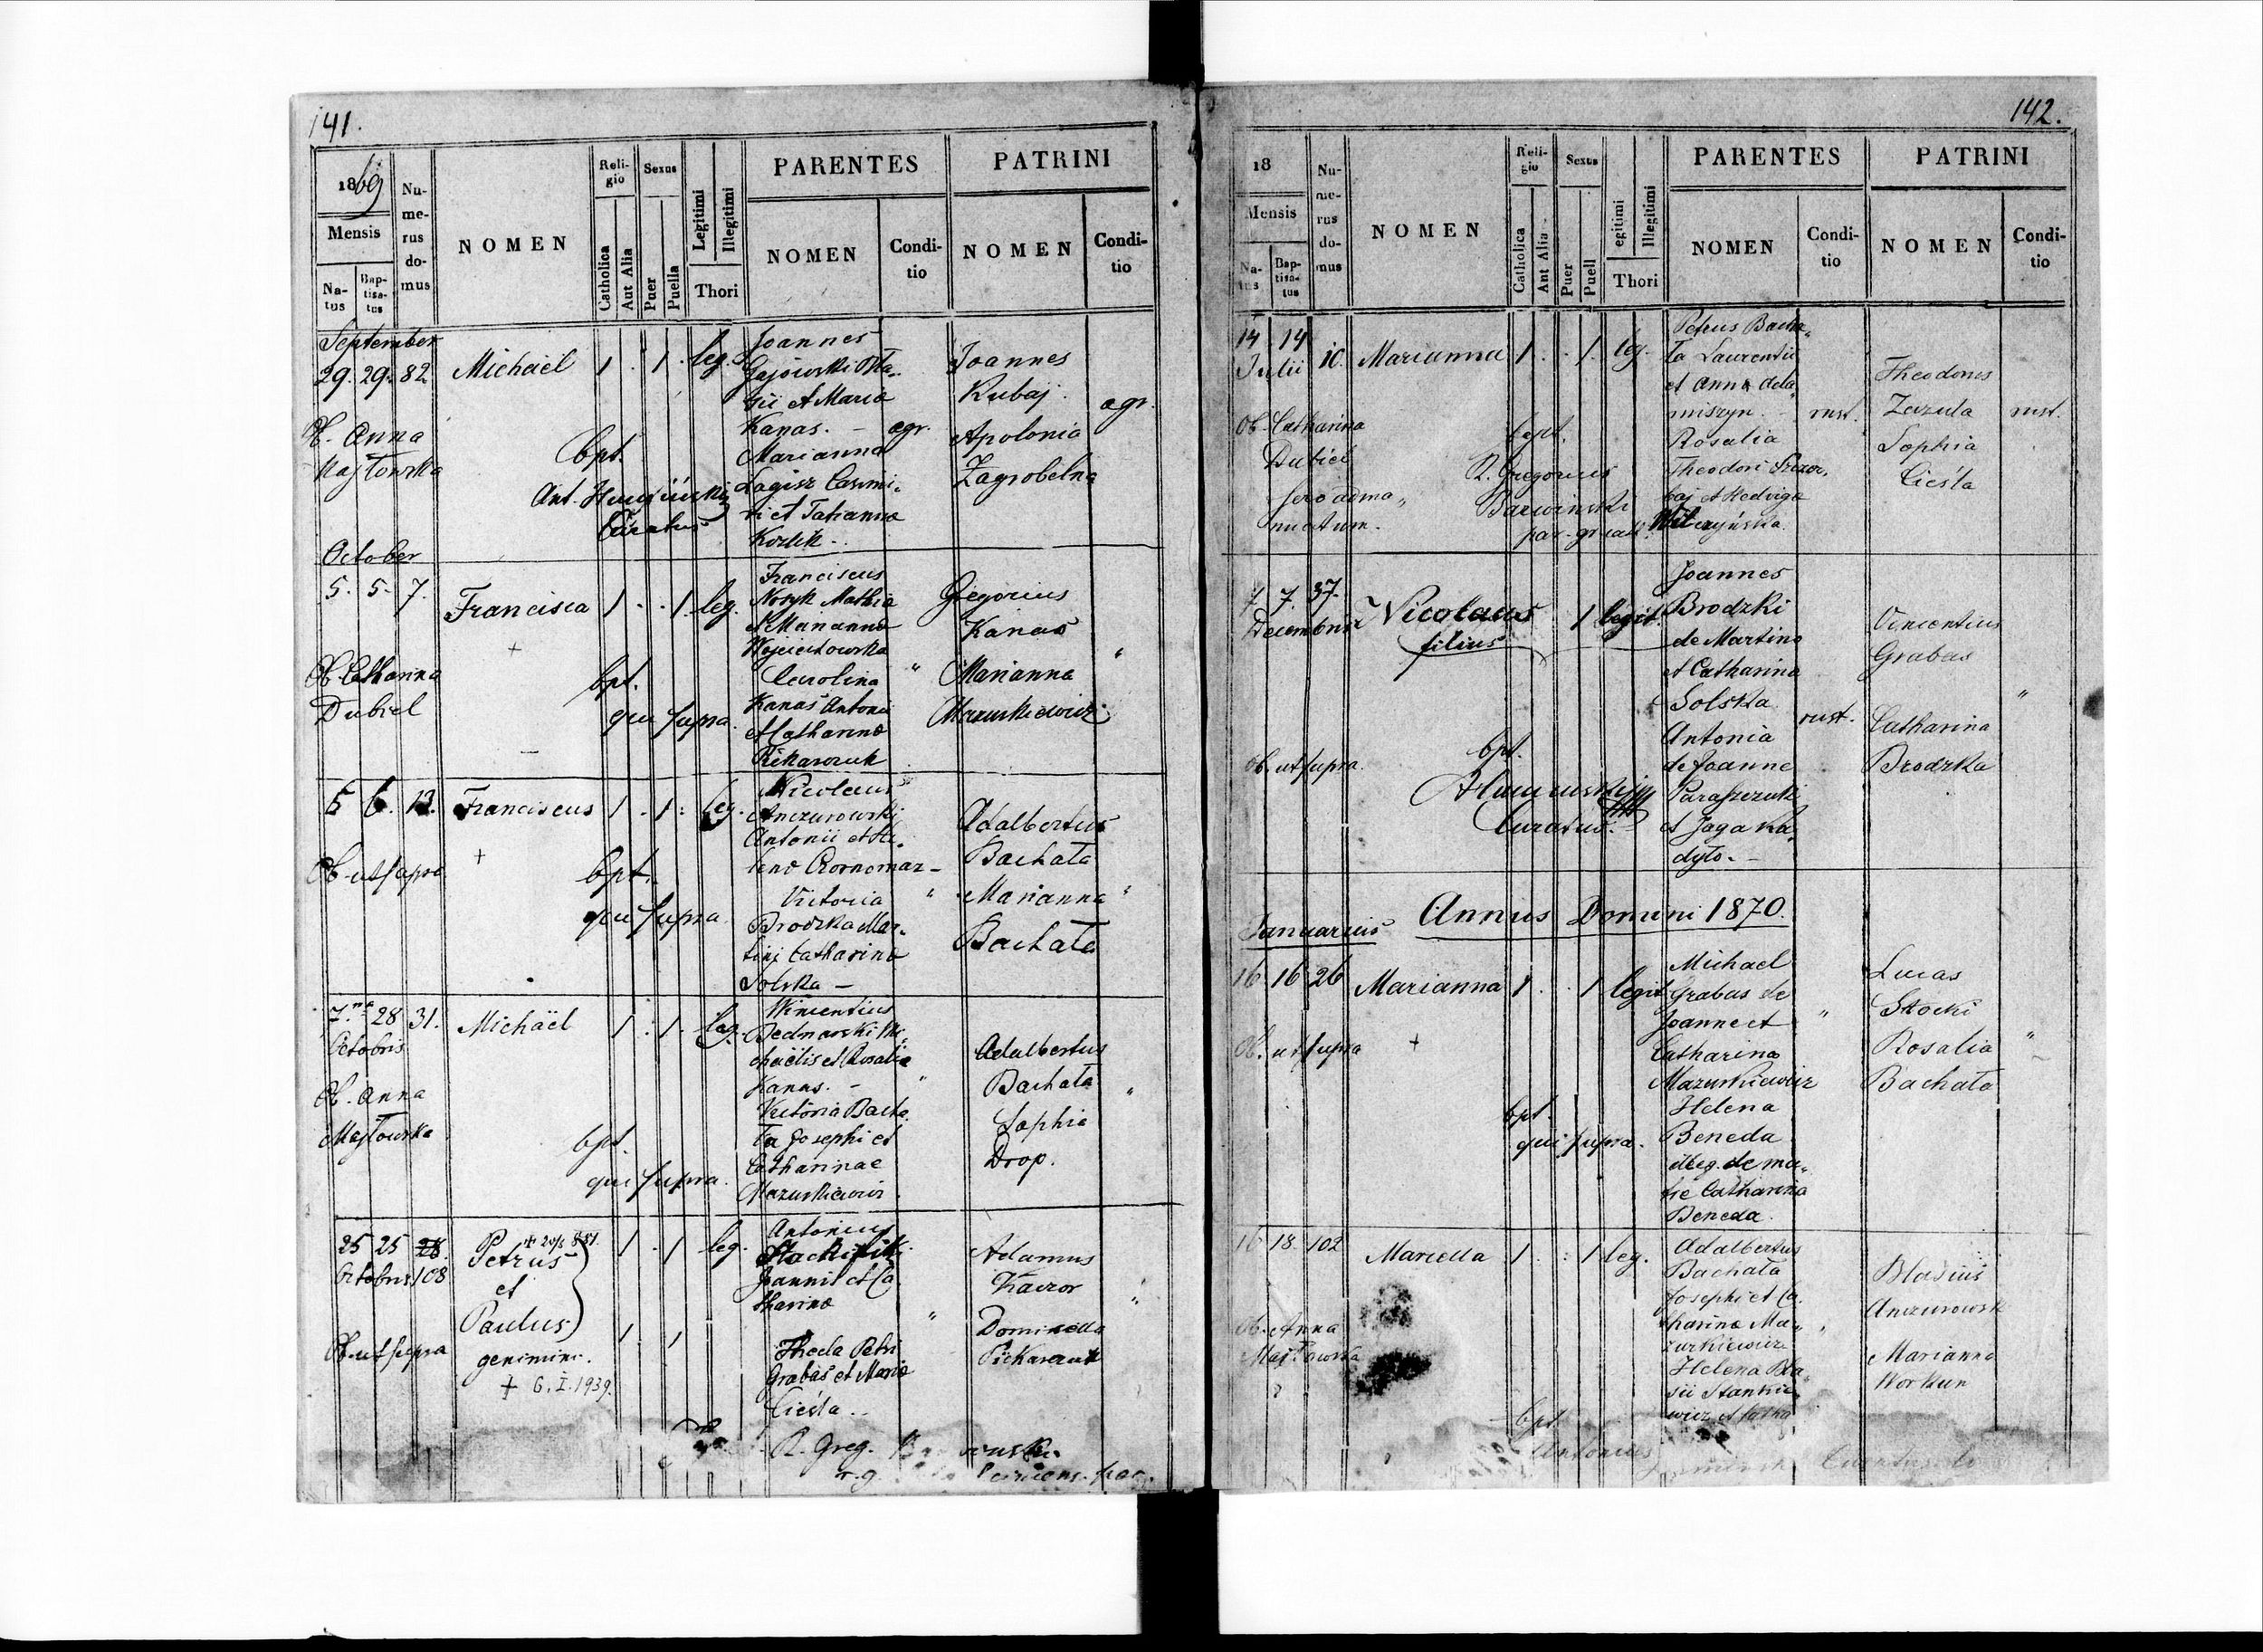 141.
1869
Mensis
Na-
tus
Bap-
tisa-
tus
Nu-
me-
rus
do-
mus
NOMEN
Reli-
gio
Catholica
Aut Alia
Sexus
Puer
Puella
Legitimi
Illegitimi
Thori
PARENTES
NOMEN
Condi-
tio
PATRINI
NOMEN
Condi-
tio
September
29. 29. 82
Michaël
1 . 1 . leg.
Joannes
Gajowski
et Maria
Kanas. - agr.
Marianna
Łagisz Casimi-
ri et Tatianna
Kozlik -
Joannes
Kubaj.
Apolonia
Zagrobelna
agr.
Ob. Anna
Majłowska
bpt.
Ant.
Curatus
October
5. 5. 7.
Francisca
1 . . 1. leg.
Franciscus
Nosyk Mathia
et Marianna
Carolina "
Kanas Antonii
et Catharina
Gregorius
Kanas
Marianna
Mazurkiewicz
"
Ob. Catharina
Dubiel
bpt.
qui supra.
5 6. 12.
Franciscus
1 . 1 : leg.
Nicolaus
Anczurowski
Antonii et He-
lena Czornomaz -
Victoria "
Brodzka Mar-
tini Catharina
Solska -
Adalbertus
Bachata
Marianna "
Bachata
Ob. ut supra
bpt.
qui supra.
7. 28 31.
Octobris
Michaël
1 : 1 . leg.
Wincentius
Bednarski Mi-
chaëlis et Rosalia
Kanas. - "
Victoria Bacha-
ta Josephi et
Catharinae
Mazurkiewicz
Adalbertus
Bachata "
Sophia
Drop.
Ob. Anna
Majłowska
bpt.
qui supra.
25 25 28.
Octobris 108
Petrus
et
Paulus
gemimini.
+ 6. I. 1939.
1 . 1 leg.
1 . 1
Antonius
Stocki
Joannis et Ca-
tharina
"
Thecla Petri
Grabas et Maria
Cieśla -
Adamus
Kaczor
Dominella
Piekarczuk
"
Ob. ut supra
R. Greg.
142.
18
Mensis
Na-
tus
Bap-
tisa-
tus
Nu-
me-
rus
do-
mus
NOMEN
Reli-
gio
Catholica
Ant Alia
Sexus
Puer
Puell
egitimi
Illegitimi
Thori
PARENTES
NOMEN
Condi-
tio
PATRINI
NOMEN
Condi-
tio
14 14
Julii 10.
Marianna
1 . . 1. leg.
Petrus Bacha-
ta Laurentii
et Anna Ada-
miszyn. - rust.
Rosalia
Theodori
et Hedviga
Wilczyńska.
Theodorus
Zazula rust.
Sophia
Cieśla
Ob. Catharina
Dubiel
bapt.
R. Gregorius
Barwinski
par. gr. cath.
7 7. 37.
Decembris
Nicolaus
filius
1 legit.
Joannes
Brodzki
de Martino
et Catharina
Solska
rust.
Antonia
de Joanne
Paraszczuk
et Jaga Ka-
dyło. -
Vincentius
Grabas
"
Catharina
Brodzka
Ob. ut supra.
bpt.
Curatus. -
Annus Domini 1870.
Januarius
16 16 26
Marianna
1 . . 1 legit
Michael
Grabas de
Joanne et "
Catharina
Mazurkiewicz
Helena
Beneda
illeg. de ma-
tre Catharina
Beneda.
Lucas
Stocki
Rosalia "
Bachata
Ob. ut supra
bpt.
qui supra.
16 18. 102
Marcella
1 . : 1 leg.
Adalbertus
Bachata
Josephi et Ca-
tharina Ma-
zurkiewicz
Helena Bla-
sii Stankie-
wicz et Catha
Blasius
Anczurowsk
Marianna
Workun
Ob. Anna
Majłowska
bpt.
Antonius